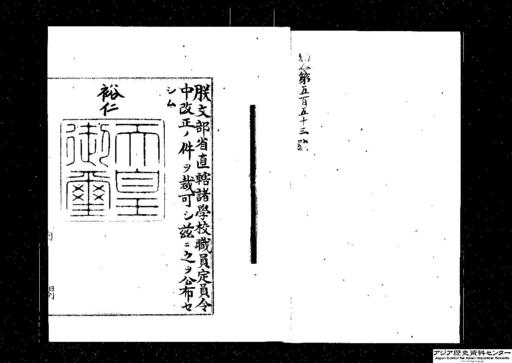 勅令第五百五十三號
朕文部省直轄諸學校職員定員令
中改正ノ件ヲ裁可シ茲ニ之ヲ公布セ
シム
裕仁
天皇御璽
アジア歴史資料センター
Japan Center for Asian Historical Records